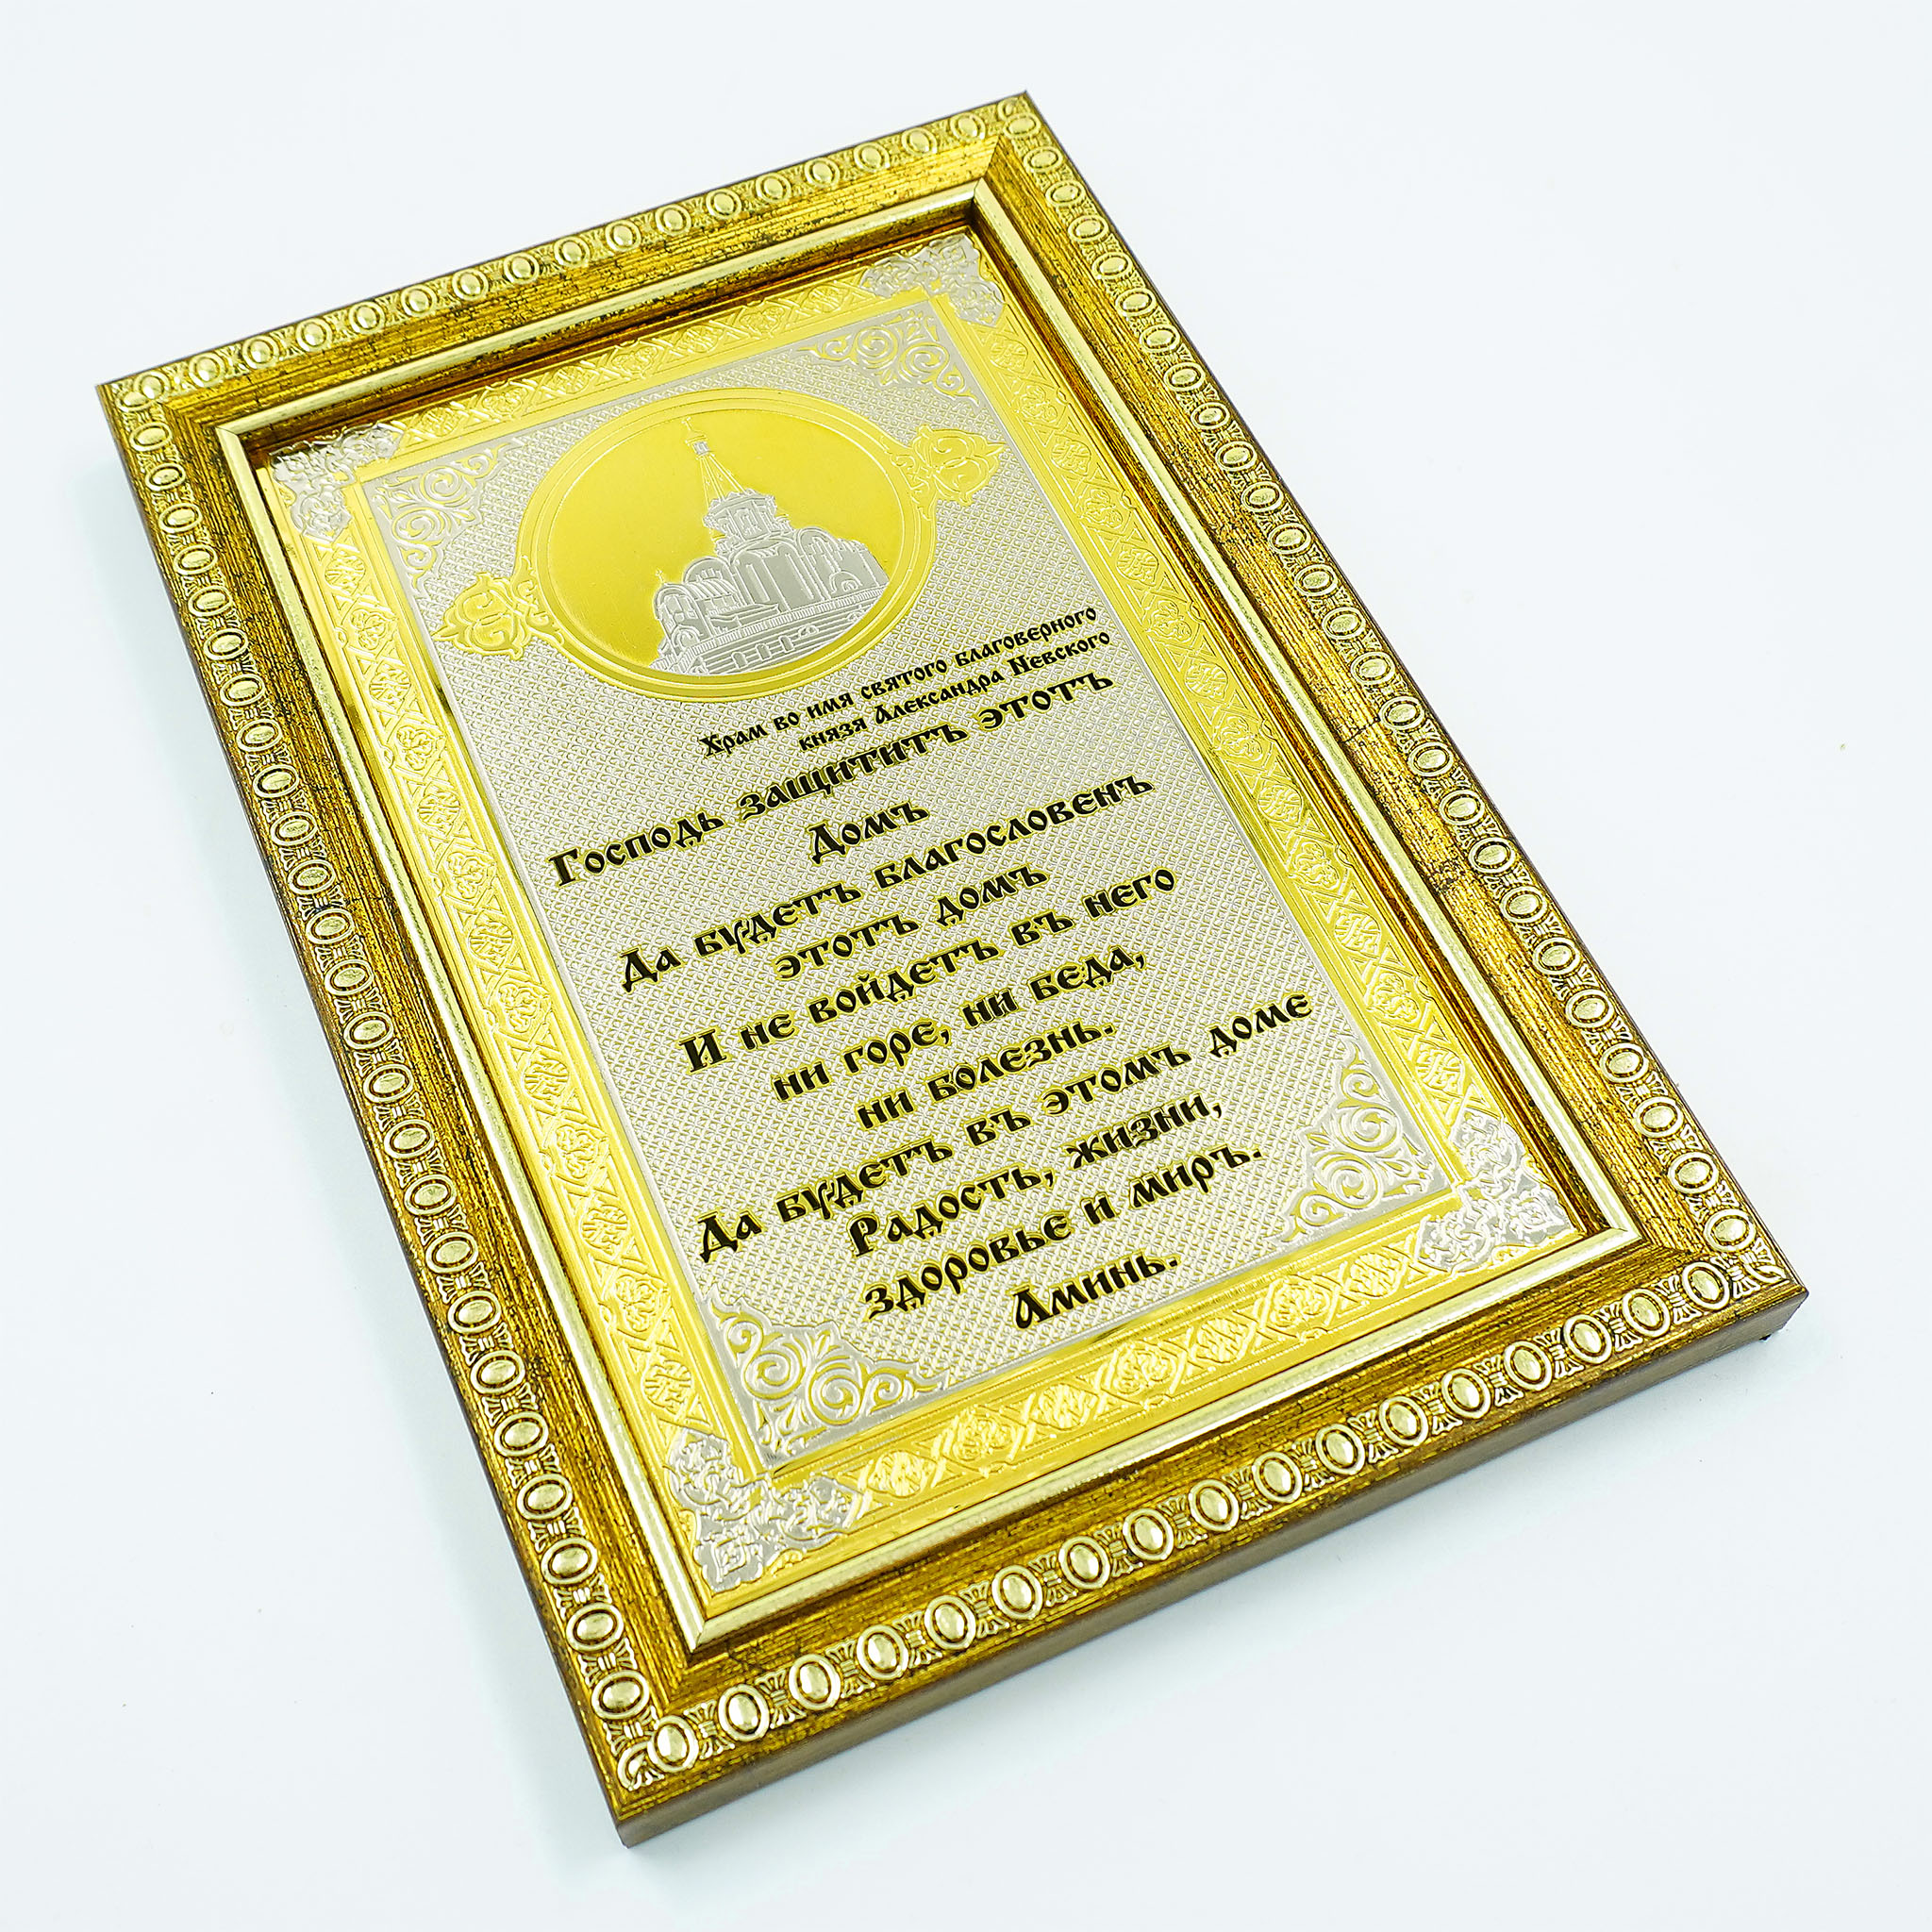 Храм во имя святого благоверного
князя Александра Невского
Господь защититъ этотъ
Домъ
Да будетъ благословенъ
этотъ домъ
И не войдетъ въ него
ни горе, ни беда,
ни болезнь.
Да будетъ въ этомъ доме
Радость, жизни,
здоровье и миръ.
Аминь.